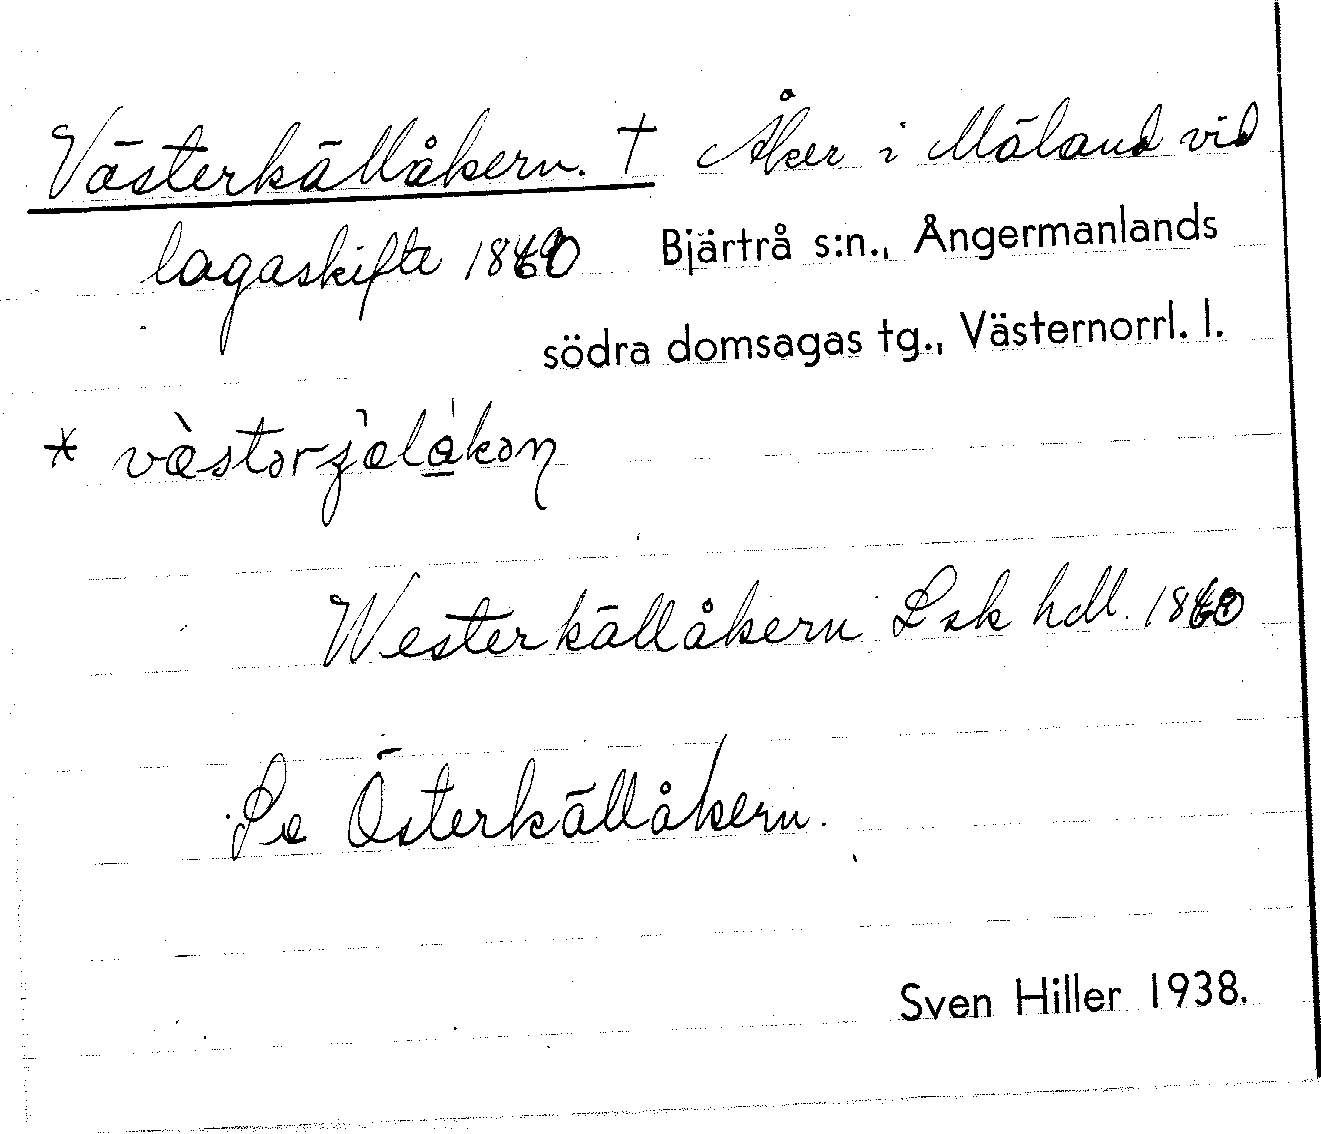 Västerkällåkern. † Åker i Mäland vid
lagaskifte 1860 Bjärtrå s:n., Ångermanlands
södra domsagas tg., Västernorrl. l.
Westerkällåkern Lsk hdl. 1860
Se Österkällåkern.
Sven Hiller 1938.